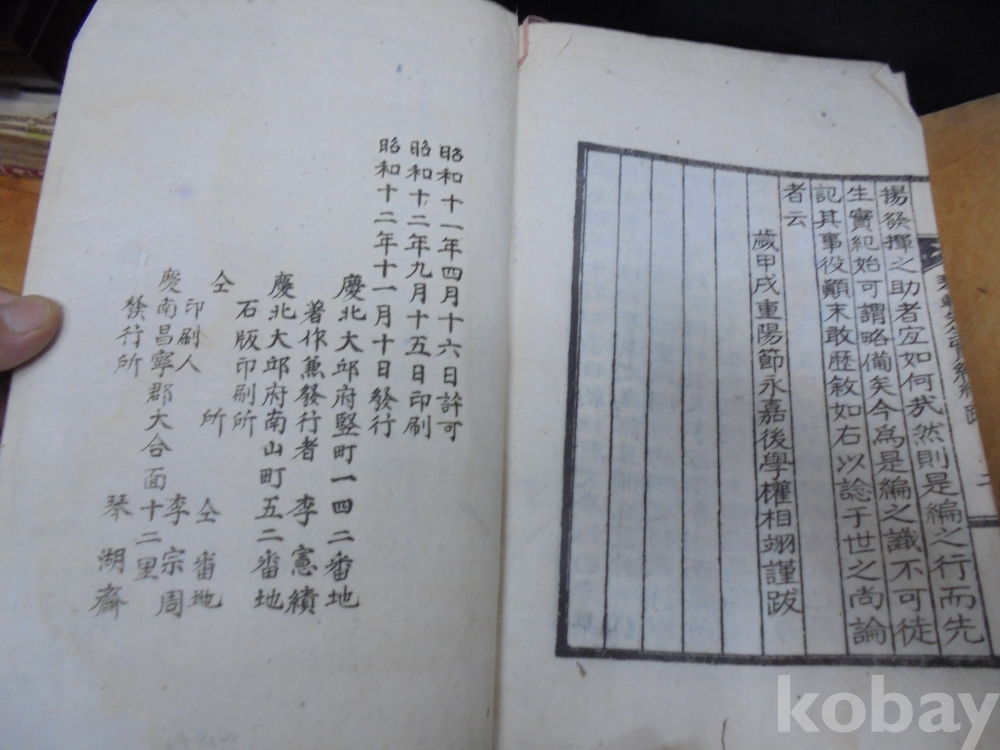 揚發揮之助者宜如何哉然則是編之行而先
生實紀始可謂略備矣今為是編之識不可徒
記其事役顚末敢歷敘如右以諗于世之尚論
者云
歲甲戌重陽節永嘉後學權相翊謹跋
昭和十一年四月十六日許可
昭和十二年九月十五日印刷
昭和十二年十一月十日發行
慶北大邱府竪町一四二番地
著作兼發行者 李憲績
慶北大邱府南山町五二番地
石版印刷所
仝所 仝番地
印刷人 李宗周
慶南昌寧郡大合面十二里
發行所 琴湖齋
kobay